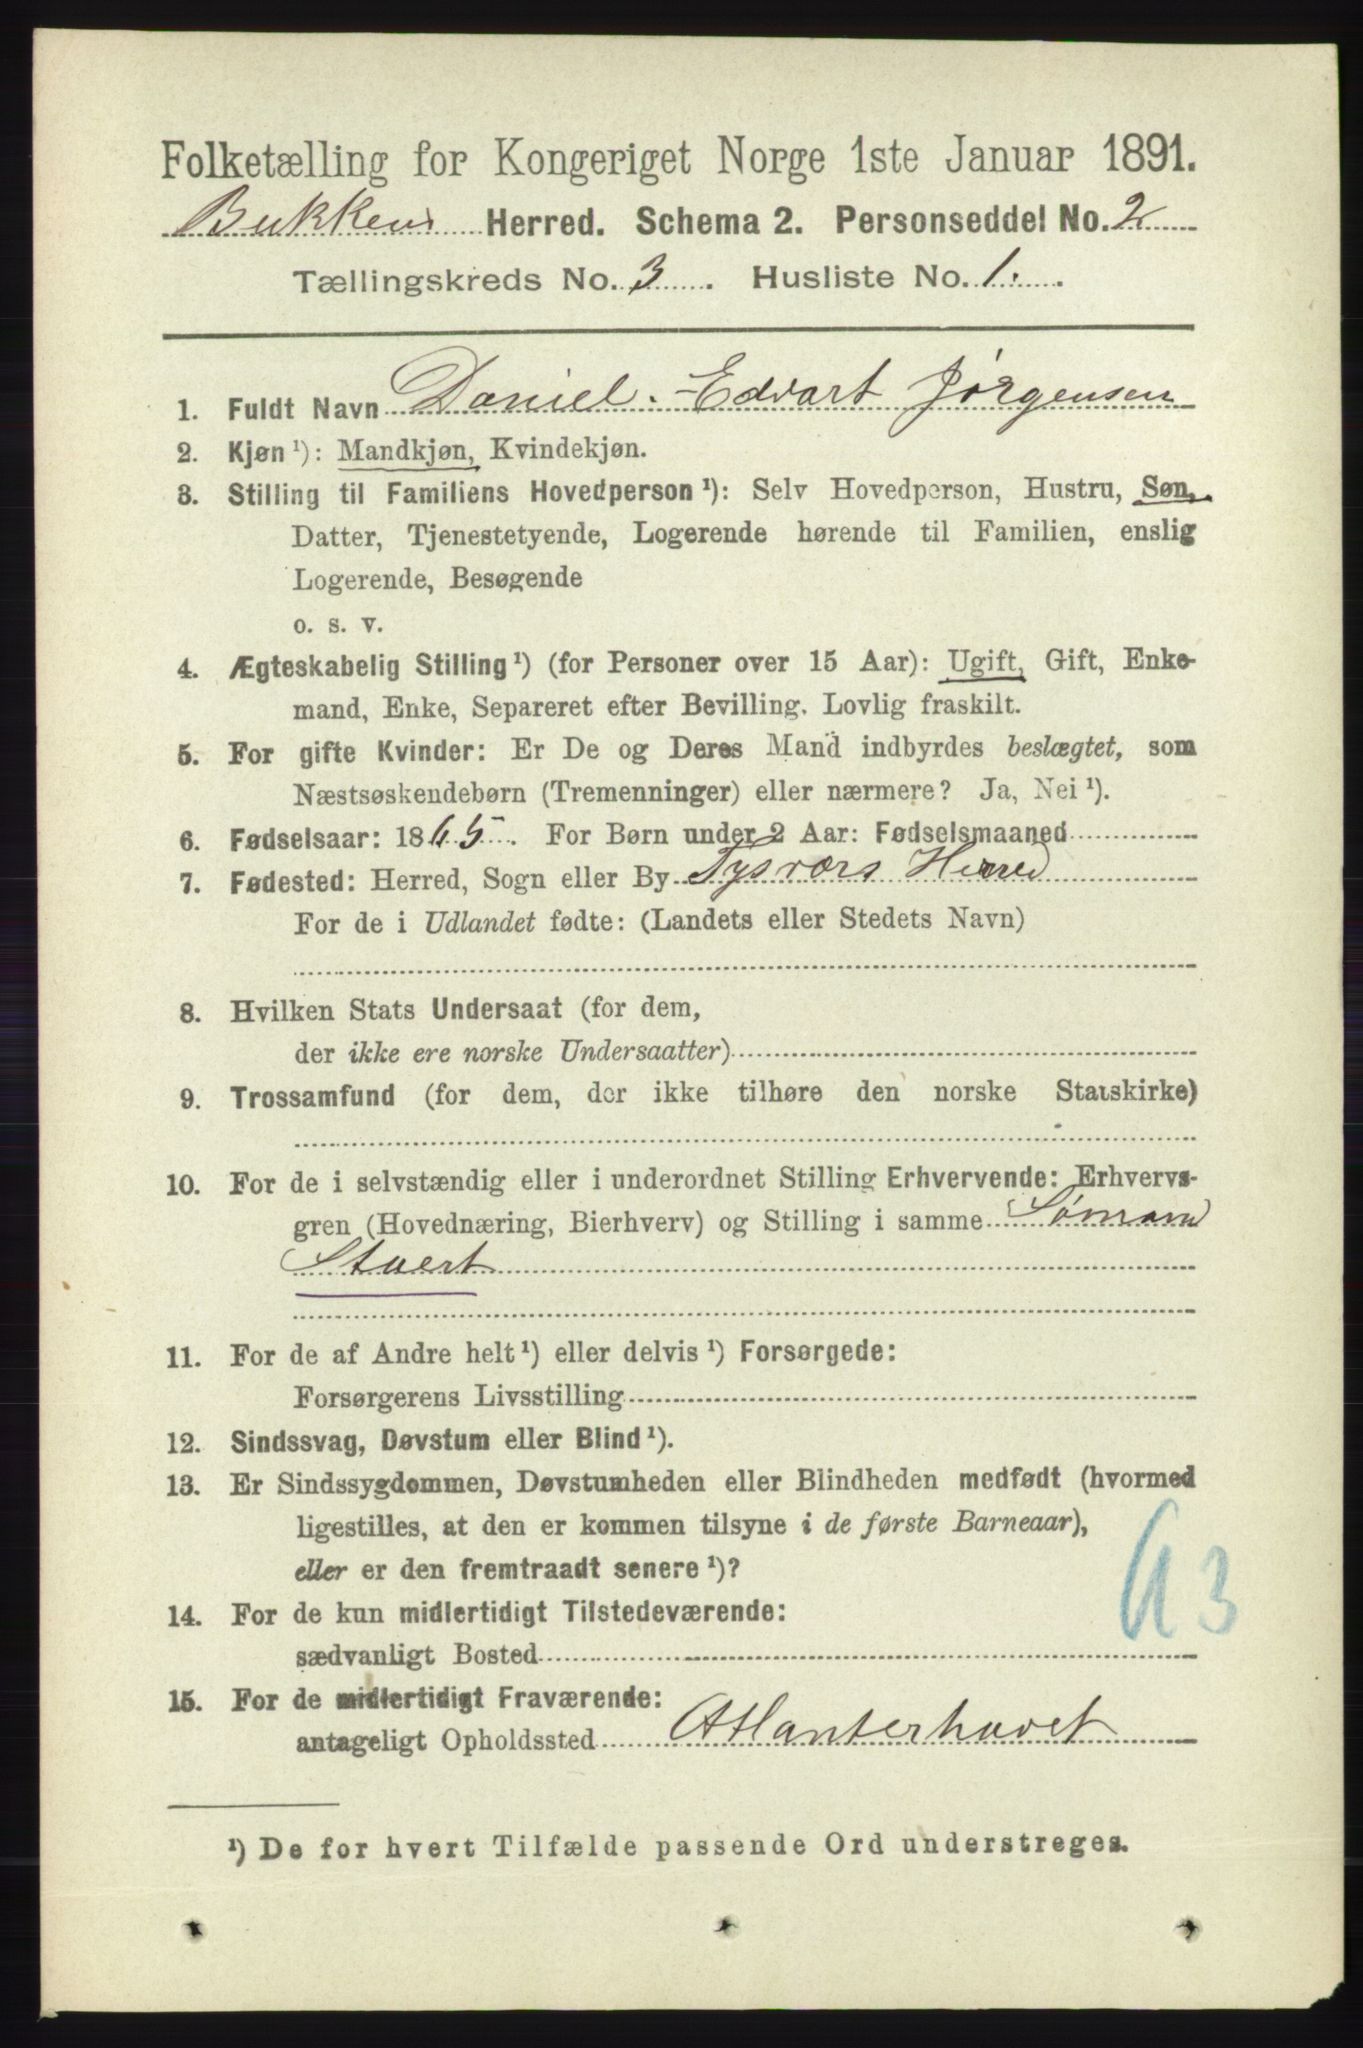 Folketælling for Kongeriget Norge 1ste Januar 1891.
Bukkens Herred. Schema 2. Personseddel No. 2
Tællingskreds No. 3. Husliste No. 1.
1. Fuldt Navn Daniel Edvart Jørgensen
2. Kjøn ¹): Mandkjøn, Kvindekjøn.
3. Stilling til Familiens Hovedperson ¹): Selv Hovedperson, Hustru, Søn,
Datter, Tjenestetyende, Logerende hørende til Familien, enslig
Logerende, Besøgende
o. s. v.
4. Ægteskabelig Stilling ¹) (for Personer over 15 Aar): Ugift, Gift, Enke-
mand, Enke, Separeret efter Bevilling. Lovlig fraskilt.
5. For gifte Kvinder: Er De og Deres Mand indbyrdes beslægtet, som
Næstsøskendebørn (Tremenninger) eller nærmere? Ja, Nei ¹).
6. Fødselsaar: 1865. For Børn under 2 Aar: Fødselsmaaned
7. Fødested: Herred, Sogn eller By Tysværs Herred
For de i Udlandet fødte: (Landets eller Stedets Navn)
8. Hvilken Stats Undersaat (for dem,
der ikke ere norske Undersaatter)
9. Trossamfund (for dem, der ikke tilhøre den norske Statskirke)
10. For de i selvstændig eller i underordnet Stilling Erhvervende: Erhvervs-
gren (Hovednæring, Bierhverv) og Stilling i samme Sømand
Stuert
11. For de af Andre helt ¹) eller delvis ¹) Forsørgede:
Forsørgerens Livsstilling
12. Sindssvag, Døvstum eller Blind ¹).
13. Er Sindssygdommen, Døvstumheden eller Blindheden medfødt (hvormed
ligestilles, at den er kommen tilsyne i de første Barneaar),
eller er den fremtraadt senere ¹)?
14. For de kun midlertidigt Tilstedeværende:
sædvanligt Bosted
15. For de midlertidigt Fraværende:
antageligt Opholdssted Atlanterhavet
¹) De for hvert Tilfælde passende Ord understreges.